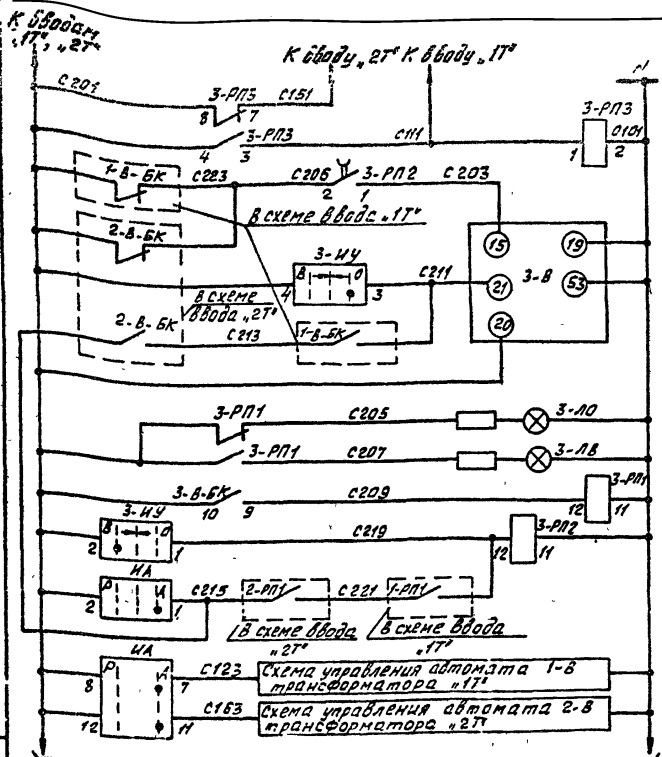 К вводам
„1Т", „2Т"
К вводу „2Т" К вводу „1Т"
N
С201
3-РП3
С151
8 7
3-РП3
С111
4 3
3-РП3
0101
1 2
1-В-БК
С223
С206
3-РП2
С203
2 1
в схеме ввода „1Т"
2-В-БК
15
19
3-ИУ
В О
4 3
С211
21
3-В
53
в схеме
ввода „2Т"
2-В-БК
С213
1-В-БК
20
3-РП1
С205
3-ЛО
3-РП1
С207
3-ЛВ
3-В-БК
С209
3-РП1
10 9
12 11
3-ИУ
В О
2 1
С219
3-РП2
12 11
ИА
Р И
2 1
С215
2-РП1
С221
1-РП1
В схеме ввода
„2Т"
В схеме ввода
„1Т"
ИА
Р И
8 7
С123
Схема управления автомата 1-В
трансформатора „1Т"
12 11
С163
Схема управления автомата 2-В
трансформатора „2Т"